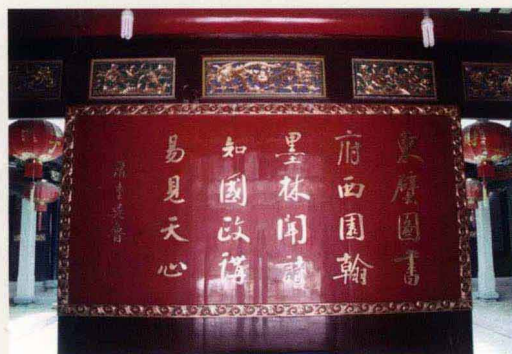 東壁圖書
府西園翰
墨林聞詩
知國政講
易見天心